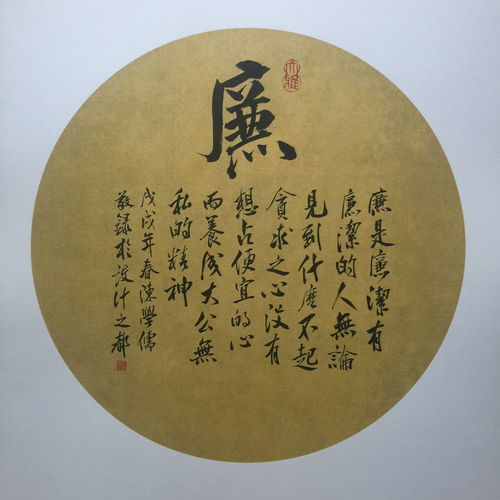 廉
廉是廉潔有
廉潔的人無論
見到什麼不起
貪求之心沒有
想占便宜的心
而養成大公無
私的精神
戊戌年春陳學儒
敬録於設计之都